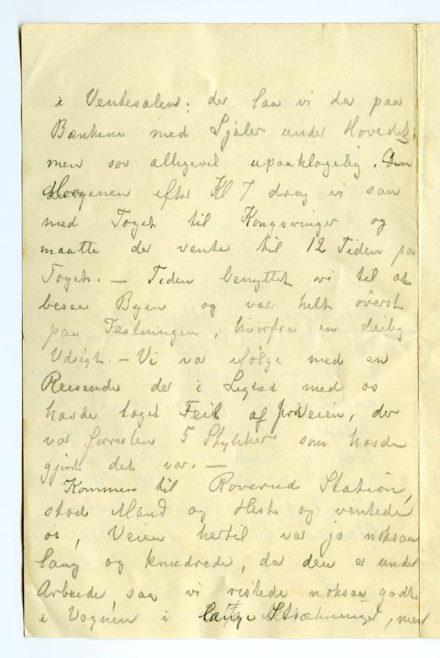 i Ventesalen; der laa vi da paa
Bænkene med Sjaler under Hovedet,
men sov alligevel upaaklagelig. Om
Morgenen efter Kl 7 drog vi saa
med Toget til Kongsvinger og
maatte der vente til 12 Tiden paa
Toget. — Tiden benyttet vi til at
besee Byen og var helt øverst
paa Fæstningen, hvorfra en deilig
Udsigt. — Vi var ifølge med en
Reisende der i Ligeed med os
havde taget Feil af JernVeien, der
var forresten 5 Stykker som havde
gjort det var. —
Kommen til Roverud Station,
stod Mand og Hest og ventede
os, Veien hertil var jo noksaa
lang og knudrede, da den er under
Arbeide saa vi ristede noksaa godt
i Vognen i lange Strækninger, men